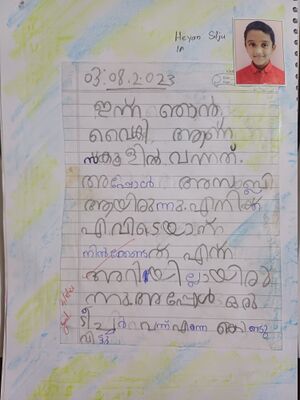 Heyan Siju
1A
03.08.2023
ഇന്ന് ഞാൻ
വൈകി ആണ്
സ്കൂളിൽ വന്നത്.
അപ്പോൾ അസംബ്ലി
ആയിരുന്നു. എനിക്ക്
എവിടെയാണ്
നിൽക്കേണ്ടത് എന്ന്
അറിയില്ലായിരു
ന്നു. അപ്പോൾ ഒരു
ടീച്ചർ വന്ന് എന്നെ
വിട്ടു